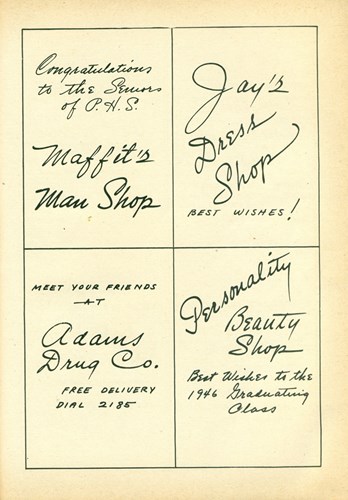 Congratulations
to the Seniors
of P.H.S.
Maffit's
Man Shop
Jay's
Dress
Shop
BEST WISHES!
MEET YOUR FRIENDS
AT
Adams
Drug Co.
FREE DELIVERY
DIAL 2185
Personality
Beauty
Shop
Best Wishes to the
1946 Graduating
Class